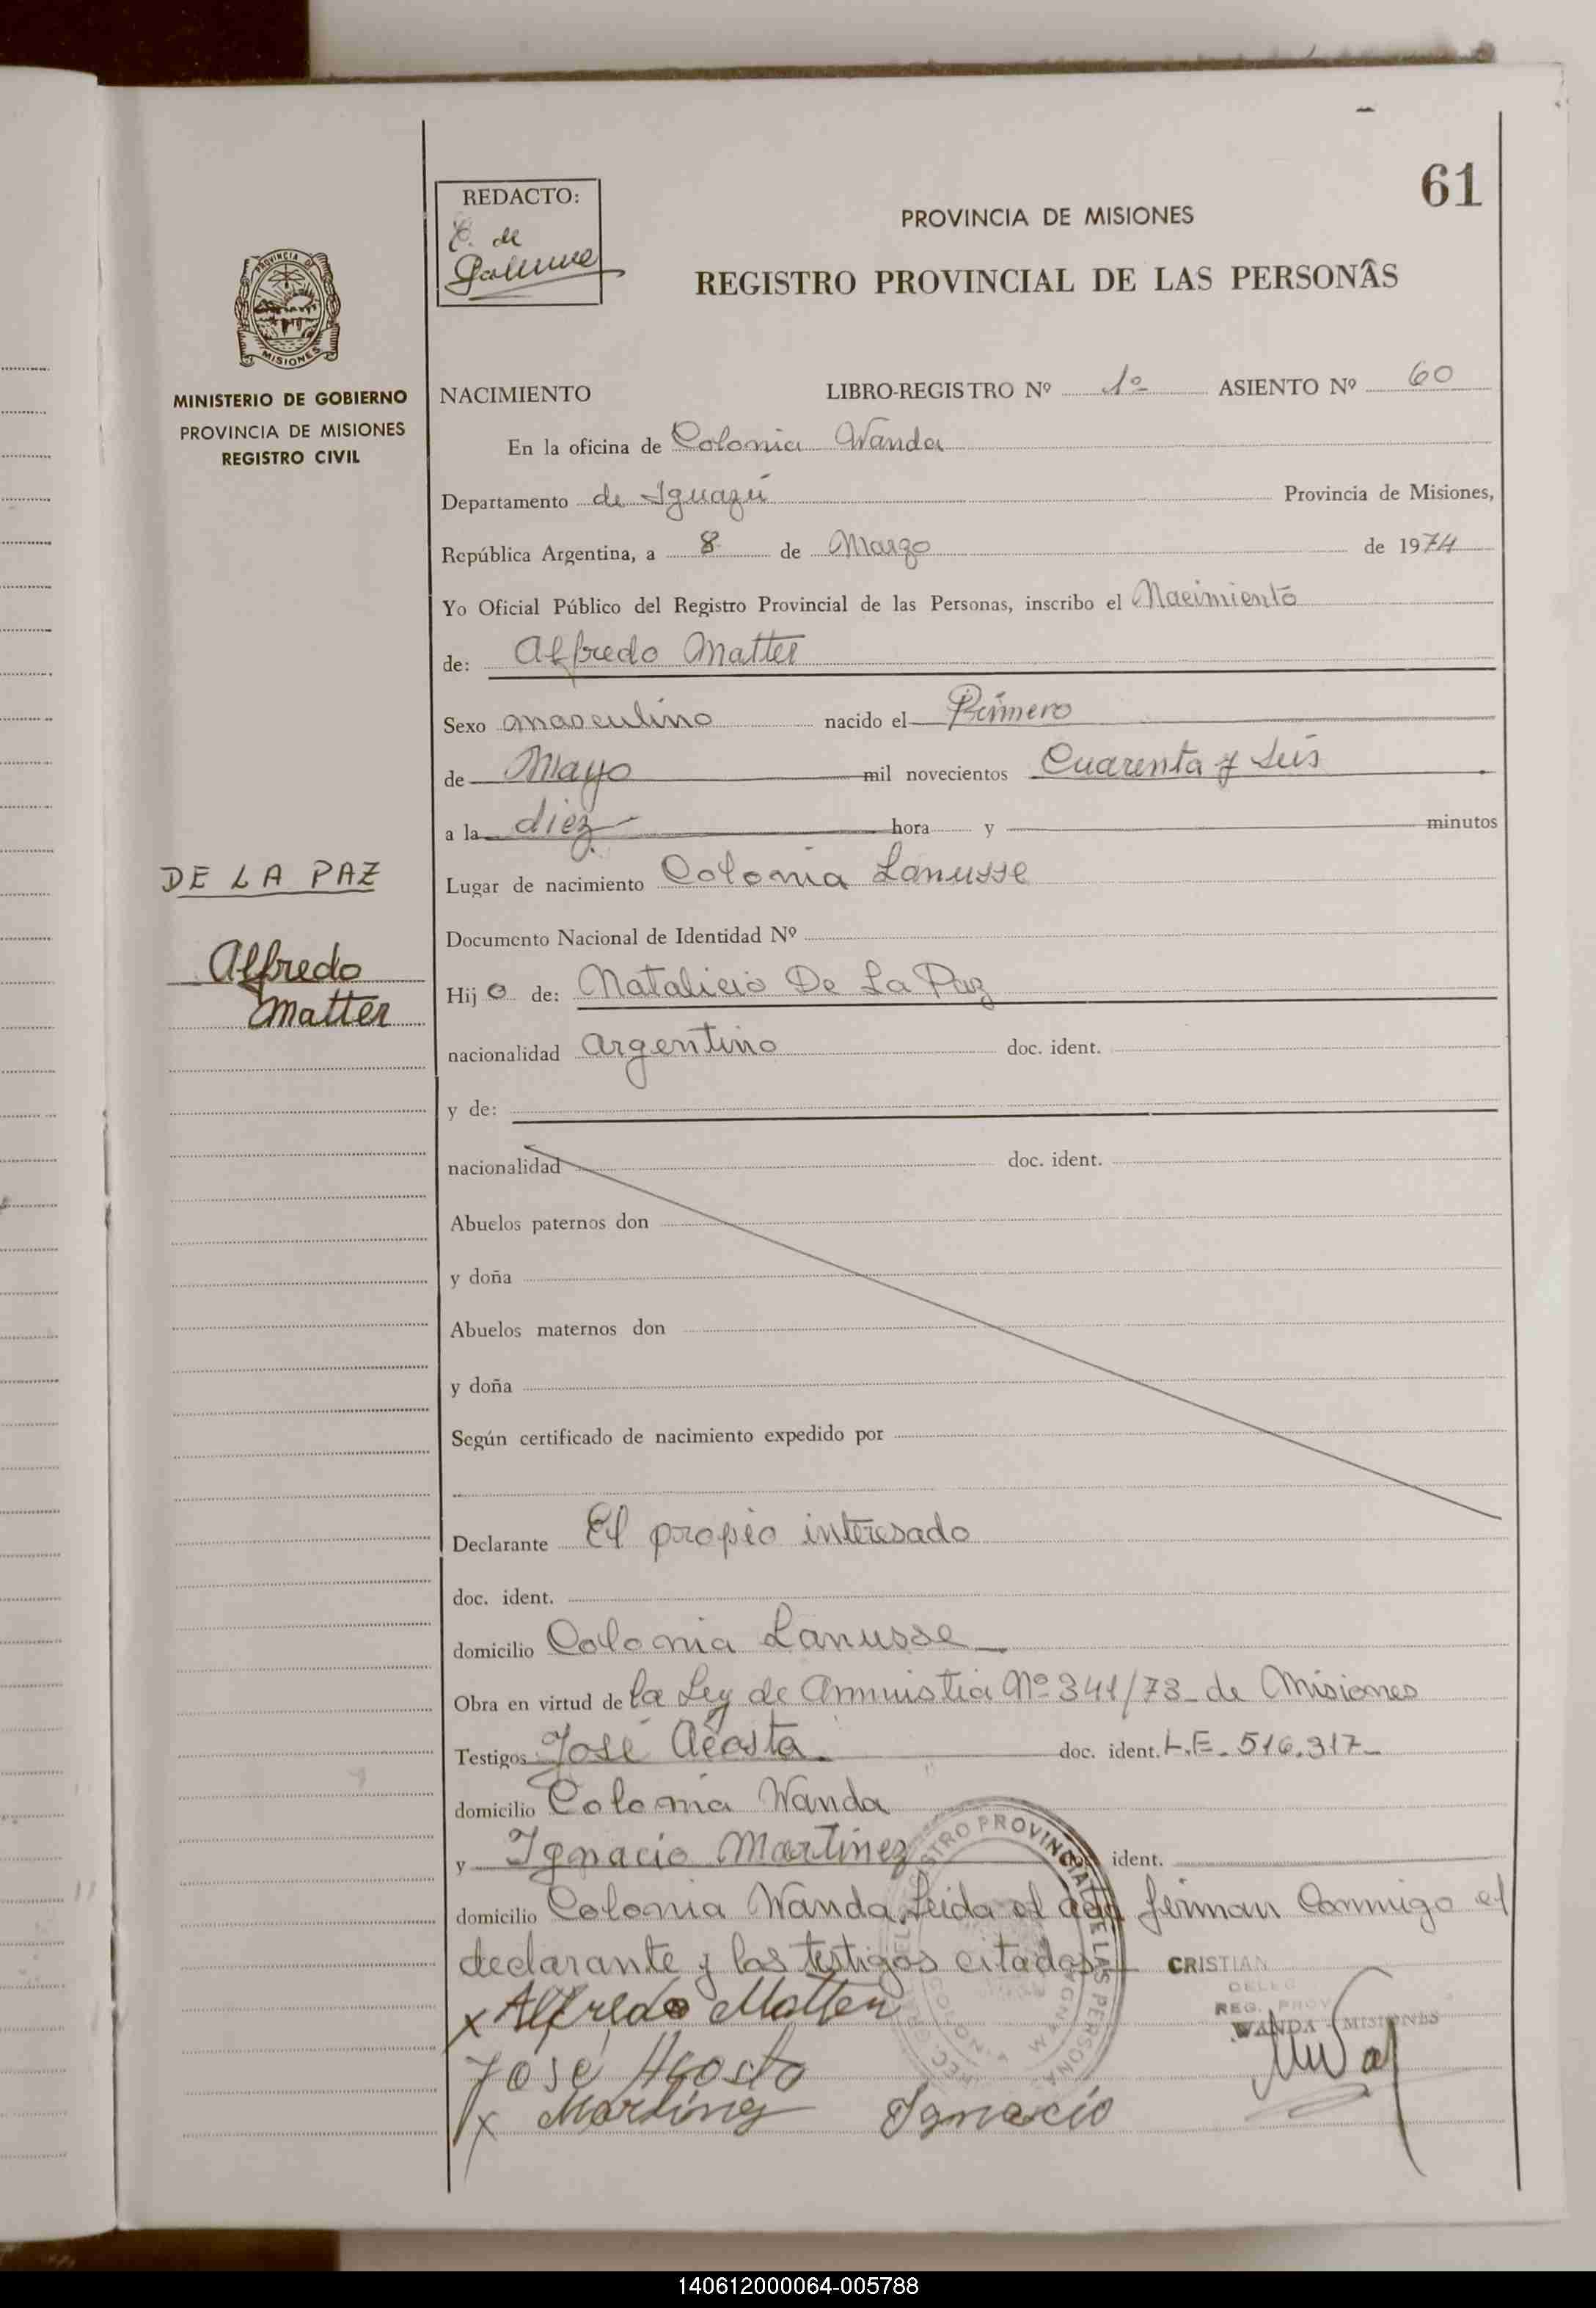 61
REDACTO:
de
PROVINCIA DE MISIONES
REGISTRO PROVINCIAL DE LAS PERSONAS
PROVINCIA DE
MISIONES
MINISTERIO DE GOBIERNO
PROVINCIA DE MISIONES
REGISTRO CIVIL
NACIMIENTO LIBRO-REGISTRO Nº 1º ASIENTO Nº 60
En la oficina de Colonia Wanda
Departamento de Iguazú Provincia de Misiones,
República Argentina, a 8 de Marzo de 1974
Yo Oficial Público del Registro Provincial de las Personas, inscribo el Nacimiento
de: Alfredo Matter
Sexo masculino nacido el Primero
de Mayo mil novecientos Cuarenta y Seis
a la diez hora y minutos
DE LA PAZ
Alfredo
Matter
Lugar de nacimiento Colonia Lanusse
Documento Nacional de Identidad Nº
Hijo de: Natalicio De La Paz
nacionalidad argentino doc. ident.
y de:
nacionalidad doc. ident.
Abuelos paternos don
y doña
Abuelos maternos don
y doña
Según certificado de nacimiento expedido por
Declarante El propio interesado
doc. ident.
domicilio Colonia Lanusse
Obra en virtud de la Ley de Amnistia Nº 341/73 de Misiones
Testigos José Acosta doc. ident. L.E. 516.317
domicilio Colonia Wanda
y Ignacio Martinez ident.
domicilio Colonia Wanda. Leida el acta firman Conmigo el
declarante y los testigos citados
CRISTIAN
DELEG
REG. PROV
WANDA - MISIONES
x Alfredo Matter
José Acosta
x Martinez Ignacio
140612000064-005788